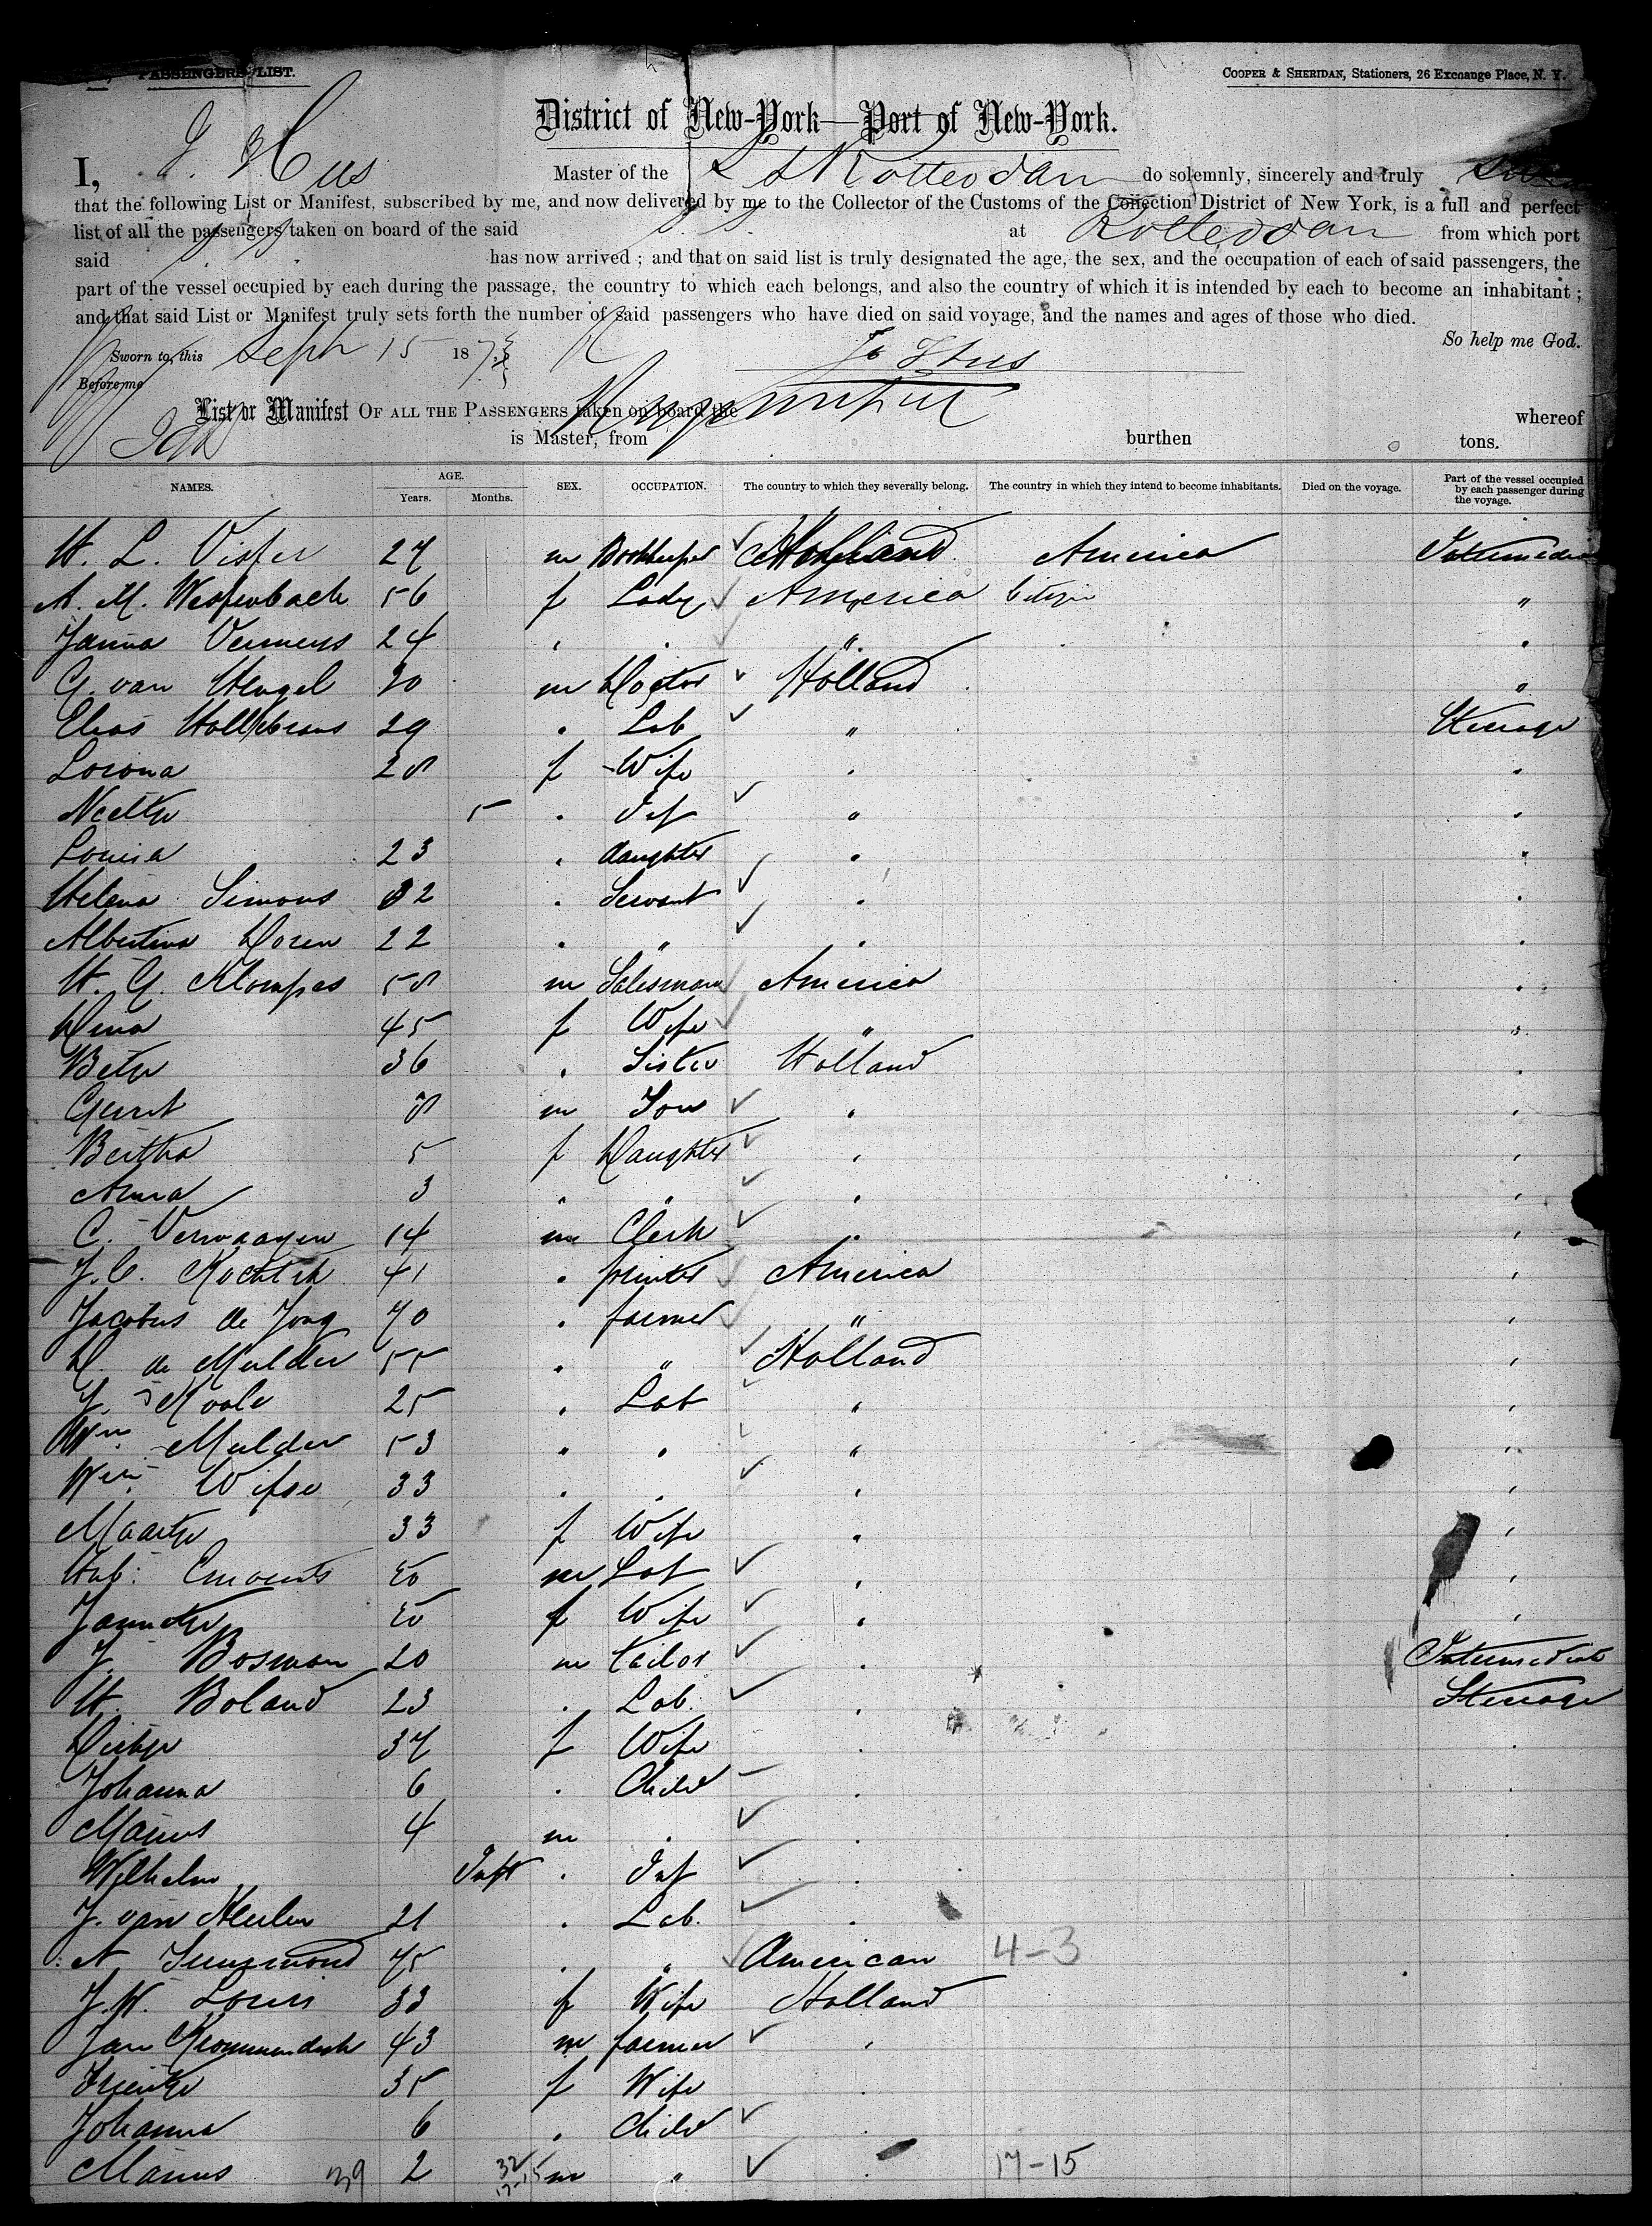 PASSENGERS LIST.
COOPER & SHERIDAN, Stationers, 26 Exchange Place, N. Y.
District of New-York—Port of New-York.
I, J. Hus Master of the S S Rotterdam do solemnly, sincerely and truly
that the following List or Manifest, subscribed by me, and now delivered by me to the Collector of the Customs of the Collection District of New York, is a full and perfect
list of all the passengers taken on board of the said S. S. at Rotterdam from which port
said S S has now arrived ; and that on said list is truly designated the age, the sex, and the occupation of each of said passengers, the
part of the vessel occupied by each during the passage, the country to which each belongs, and also the country of which it is intended by each to become an inhabitant ;
and that said List or Manifest truly sets forth the number of said passengers who have died on said voyage, and the names and ages of those who died.
So help me God.
Sworn to, this Sept 15 187
J. Hus
Before me
List or Manifest OF ALL THE PASSENGERS taken on board the whereof
is Master, from burthen tons.
NAMES. AGE. Years. Months. SEX. OCCUPATION. The country to which they severally belong. The country in which they intend to become inhabitants. Died on the voyage. Part of the vessel occupied by each passenger during the voyage.
H. L. Visser 27 m Bookkeeper Holland America Intermediate
A. M. Westenbach 56 f Lady America Citizen "
Janna Vermeys 24 " " " "
G. van Hengel 30 m Doctor Holland "
Elias Hollebrans 29 " Lab " Steerage
Lorona 28 f Wife " "
Neeltje 5 " Inf " "
Louisa 23 " daughter " "
Helena Simons 32 " Servant " "
Albertina Doren 22 " " " "
H. G. Klompas 58 m Salesman America "
Dina 45 f Wife " "
Betje 36 " Sister Holland "
Gerrit 8 m Son " "
Bertha 5 f Daughter " "
Anna 3 " " " "
C. Verwaayen 14 m Clerk " "
J. C. 41 " printer America "
Jacobus de Jong 70 " farmer " "
D. de Mulder 55 " " Holland "
J. Koole 25 " Lab " "
Wm. Mulder 53 " " " "
Wm. Wisse 33 " " " "
Maatje 33 f Wife " "
m Lab " "
Jannetje f Wife " "
J. Bosman 20 m tailor " Intermediate
H. Boland 23 " Lab. " Steerage
Dirkje 37 f Wife " "
Johanna 6 " Child " "
Marius 4 m " " "
Wilhelm Inft " Inf "
J. van Meulen 21 " Lab. "
A 75 " " American 4-3
J. H. Louis 33 f Wife Holland
Jan Krommendyk 43 m farmer "
Trientje 35 f Wife "
Johanna 6 " Child "
Marius 39 2 m " " 17-15